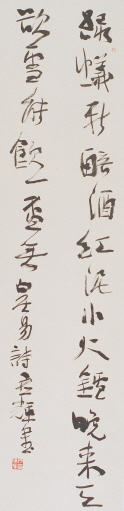 綠蟻新醅酒紅泥小火鑪晚来天
欲雪能飲一盃无白居易詩輝書